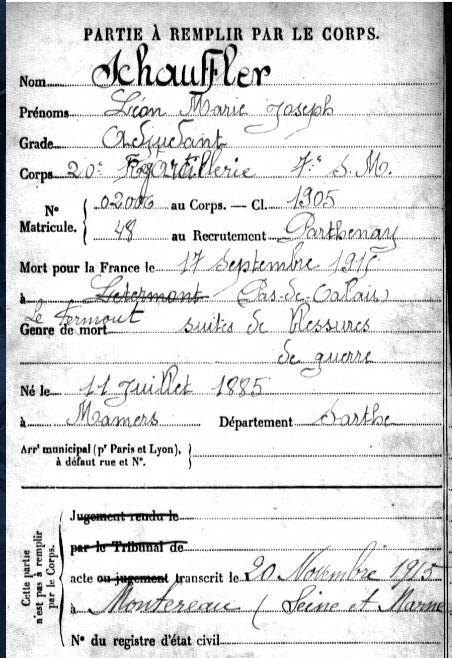 PARTIE À REMPLIR PAR LE CORPS.
Nom Schauffler
Prénoms Léon Marie Joseph
Grade Adjudant
Corps 20e Rg artillerie 7e S. M.
N° Matricule. { 02006 au Corps. — Cl. 1905
48 au Recrutement Parthenay
Mort pour la France le 17 septembre 1915
à Letermont (Pas-de-Calais)
Le Fermont
Genre de mort suites de blessures
de guerre
Né le 11 Juillet 1885
à Mamers Département Sarthe
Arrt municipal (pr Paris et Lyon),
à défaut rue et N°.
Cette partie n'est pas à remplir par le Corps.
Jugement rendu le
par le Tribunal de
acte ou jugement transcrit le 20 Novembre 1915
à Montereau (Seine et Marne
N° du registre d'état civil